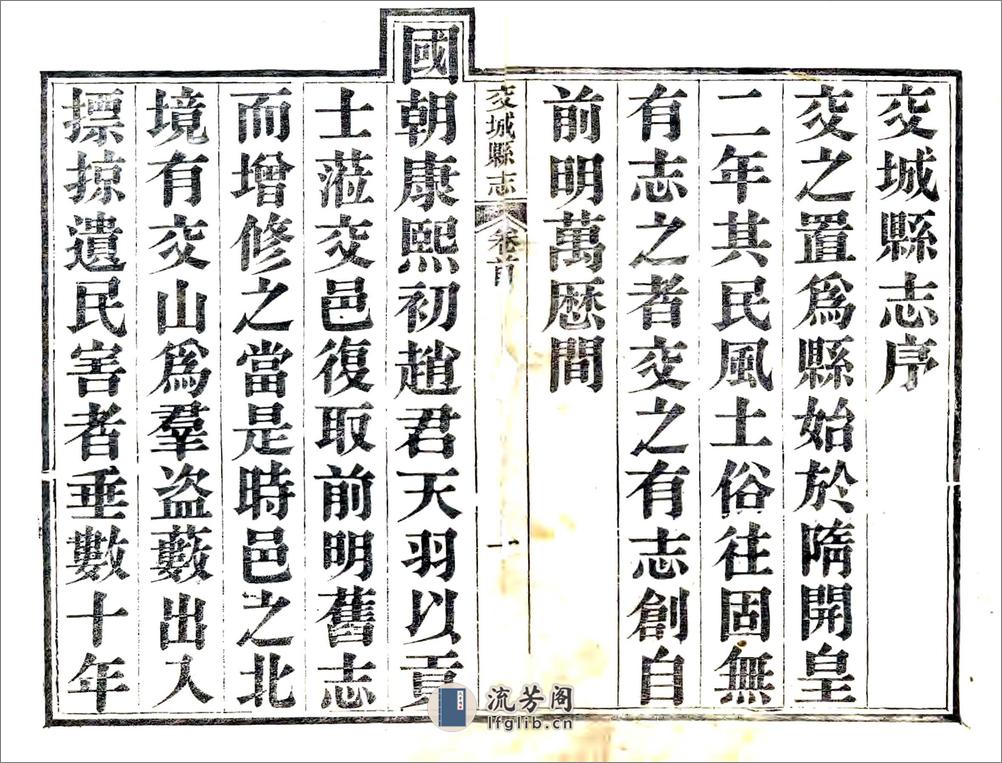 交城縣志序
交之置爲縣始於隋開皇
二年其民風土俗往固無
有志之者交之有志創自
前明萬厯間
交城縣志 卷首 一
國朝康熙初趙君天羽以貢
士蒞交邑復取前明舊志
而增修之當是時邑之北
境有交山爲羣盜藪出入
摽掠遺民害者垂數十年
流芳阁
lfglib.cn